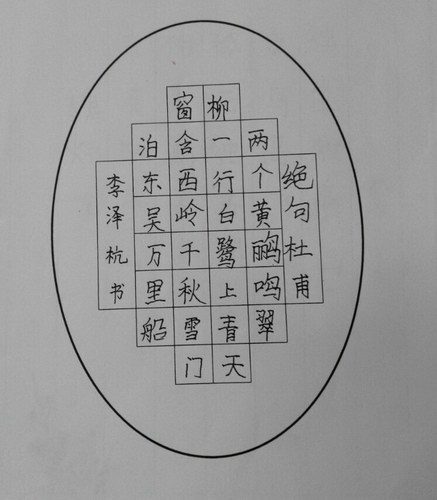 绝句杜甫
两个黄鹂鸣翠
柳一行白鹭上青天
窗含西岭千秋雪门
泊东吴万里船
李泽杭书